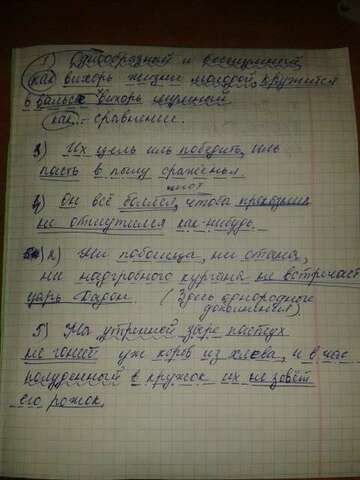 1) Однообразный и безумный,
как вихорь жизни молодой, кружится
вальса вихорь шумный
как - сравнение.
3) Их цель иль победить, иль
пасть в пылу сраженья
4) Он всё боялся, чтобы проказник
не отшутился как-нибудь.
2) Ни побоища, ни стана,
ни надгробного кургана не встречает
царь Дадон. (Здесь однородные
дополнения)
5) На утренней заре пастух
не гонит уж коров из хлева, и в час
полуденный в кружок их не зовёт
его рожок.